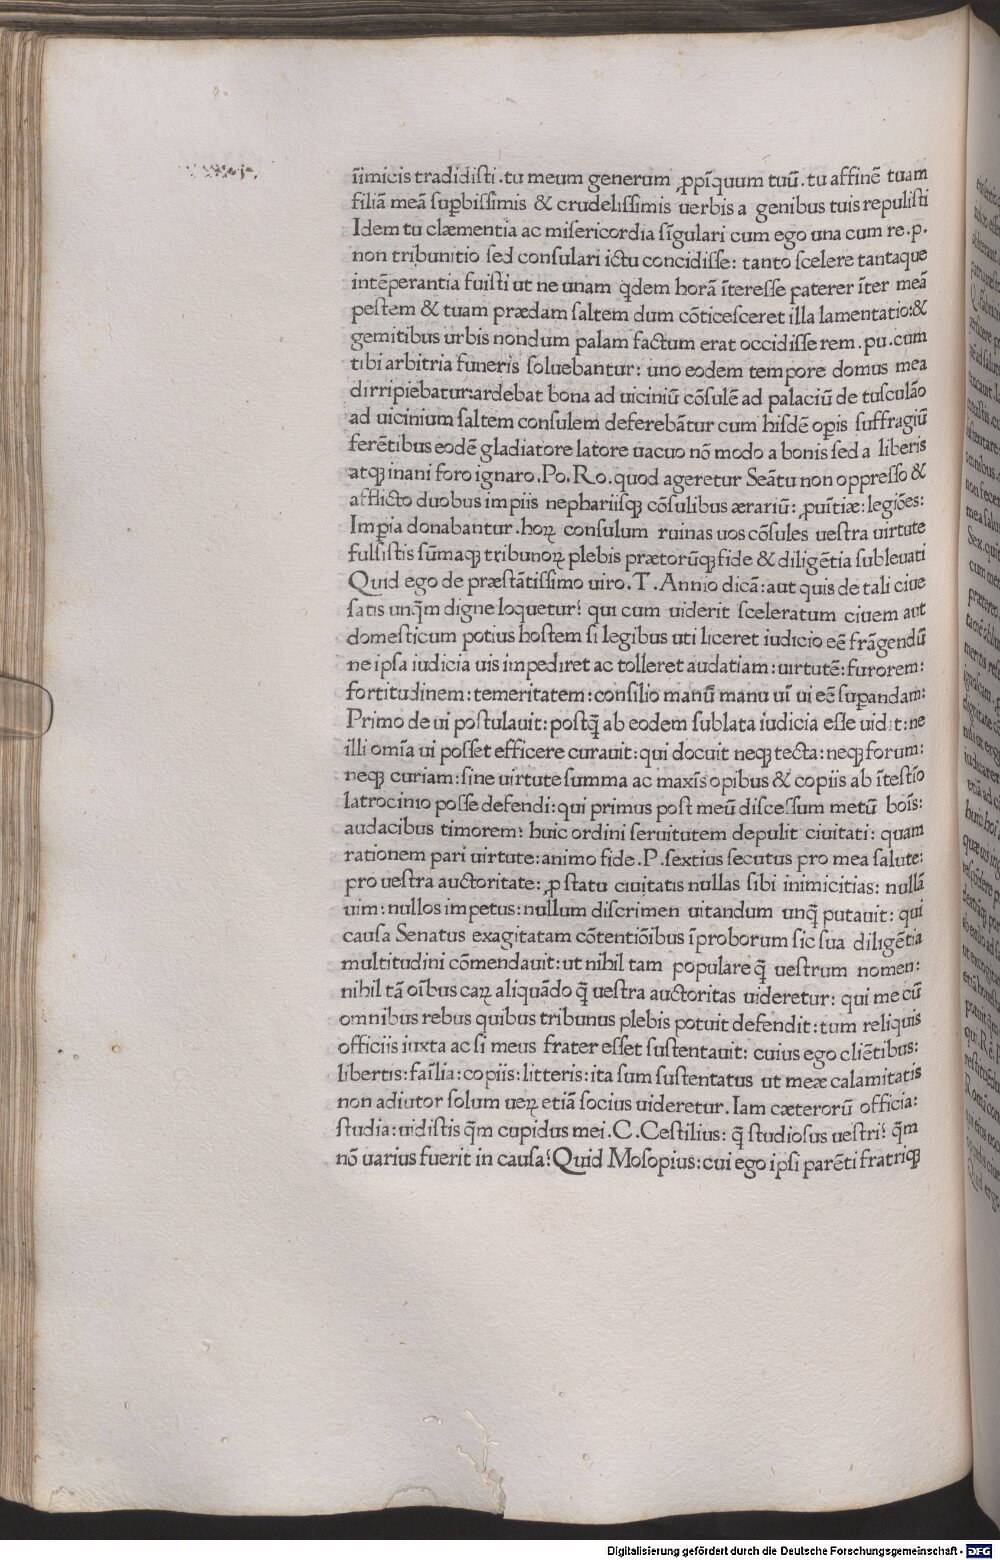 īimicis tradidisti.tu meum generum ꝓpīquum tuū.tu affinē tuam
filiā meā suꝑbissimis & crudelissimis uerbis a genibus tuis repulisti
Idem tu clæmentia ac misericordia sīgulari cum ego una cum re.p.
non tribunitio sed consulari ictu concidisse: tanto scelere tantaque
intēperantia fuisti ut ne unam qdem horā īteresse paterer īter meā
pestem & tuam prædam saltem dum cōticesceret illa lamentatio:&
gemitibus urbis nondum palam factum erat occidisse rem.pu.cum
tibi arbitria funeris soluebantur: uno eodem tempore domus mea
dirripiebatur:ardebat bona ad uiciniū cōsulē ad palaciū de tusculāo
ad uicinium saltem consulem deferebātur cum hisdē oꝑis suffragiū
ferētibus eodē gladiatore latore uacuo nō modo a bonis sed a liberis
atqꝫ inani foro ignaro.Po.Ro.quod ageretur Seātu non oppresso &
afflicto duobus impiis nephariisqꝫ cōsulibus ærariū: ꝓuītiæ:legiōes:
Imꝑia donabantur.hoꝝ consulum ruinas uos cōsules uestra uirtute
fulsistis sūmaqꝫ tribunoꝝ plebis prætorūqꝫ fide & diligētia subleuati
Quid ego de præstātissimo uiro.T.Annio dicā:aut quis de tali ciue
satis unq̄m digne loquetur? qui cum uiderit sceleratum ciuem aut
domesticum potius hostem si legibus uti liceret iudicio eē frāgendū
ne ipsa iudicia uis impediret ac tolleret audatiam:uirtutē:furorem:
fortitudinem:temeritatem:consilio manū manu uī ui eē suꝑandam:
Primo de ui postulauit:postq̄ ab eodem sublata iudicia esse uidit:ne
illi omīa ui posset efficere curauit:qui docuit neqꝫ tecta:neqꝫ forum:
neqꝫ curiam:sine uirtute summa ac maxīs opibus & copiis ab ītestīo
latrocinio posse defendi:qui primus post meū discessum metū boīs:
audacibus timorem: huic ordini seruitutem depulit ciuitati: quam
rationem pari uirtute:animo fide.P.sextius secutus pro mea salute:
pro uestra auctoritate: ꝓ statu ciuitatis nullas sibi inimicitias: nullā
uim:nullos impetus:nullum discrimen uitandum unq̄ putauit: qui
causa Senatus exagitatam cōtentiōibus īproborum sic sua diligētia
multitudini cōmendauit:ut nihil tam populare q̄ uestrum nomen:
nihil tā oībus caꝝ aliquādo q̄ uestra auctoritas uideretur: qui me cū
omnibus rebus quibus tribunus plebis potuit defendit:tum reliquis
officiis iuxta ac si meus frater esset sustentauit: cuius ego cliētibus:
libertis:faīlia:copiis:litteris:ita sum sustentatus ut meæ calamitatis
non adiutor solum ueꝝ etiā socius uideretur.Iam cæterorū officia:
studia:uidistis q̄m cupidus mei.C.Cestilius: q̄ studiosus uestri? q̄m
nō uarius fuerit in causa?Quid Mosopius:cui ego ipsi parēti fratriqꝫ
Digitalisierung gefördert durch die Deutsche Forschungsgemeinschaft - DFG